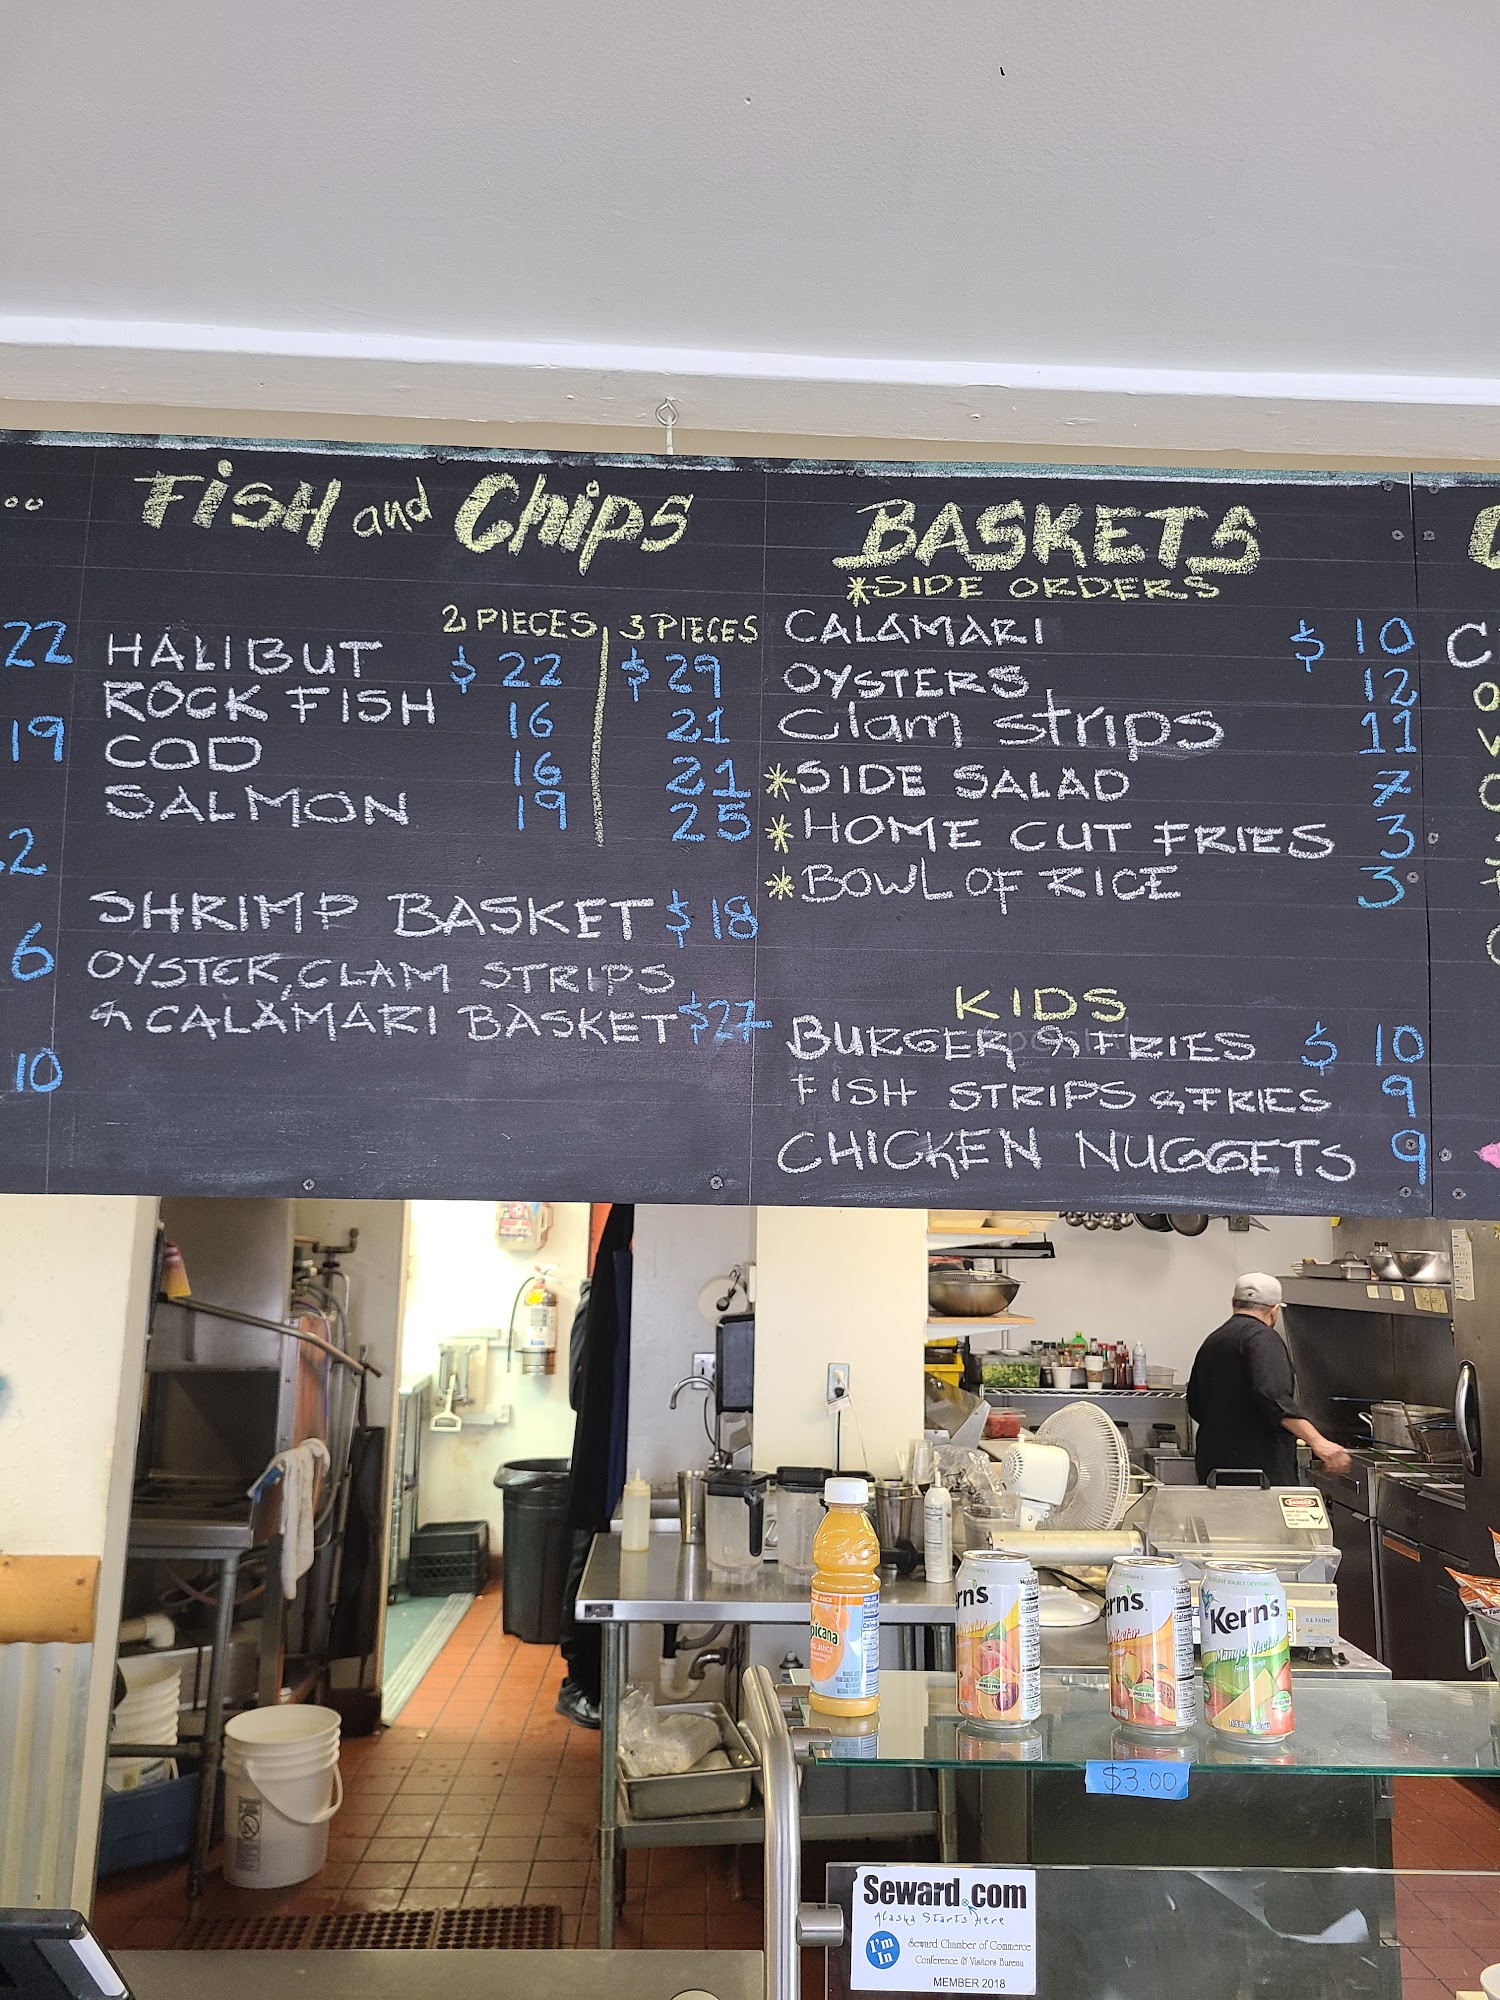 Fish and Chips
2 PIECES 3 PIECES
22
HALIBUT $22 $29
ROCK FISH 16 21
19
COD 16 21
SALMON 19 25
SHRIMP BASKET $18
6
OYSTER, CLAM STRIPS
& CALAMARI BASKET $27
10
BASKETS
*SIDE ORDERS
CALAMARI $10
OYSTERS 12
Clam strips 11
*SIDE SALAD 7
*HOME CUT FRIES 3
*BOWL OF RICE 3
KIDS
BURGER & FRIES $10
FISH STRIPS & FRIES 9
CHICKEN NUGGETS 9
Kern's
Mango Nectar
$3.00
Seward.com
Alaska Starts Here
I'm In
Seward Chamber of Commerce
Conference & Visitors Bureau
MEMBER 2018